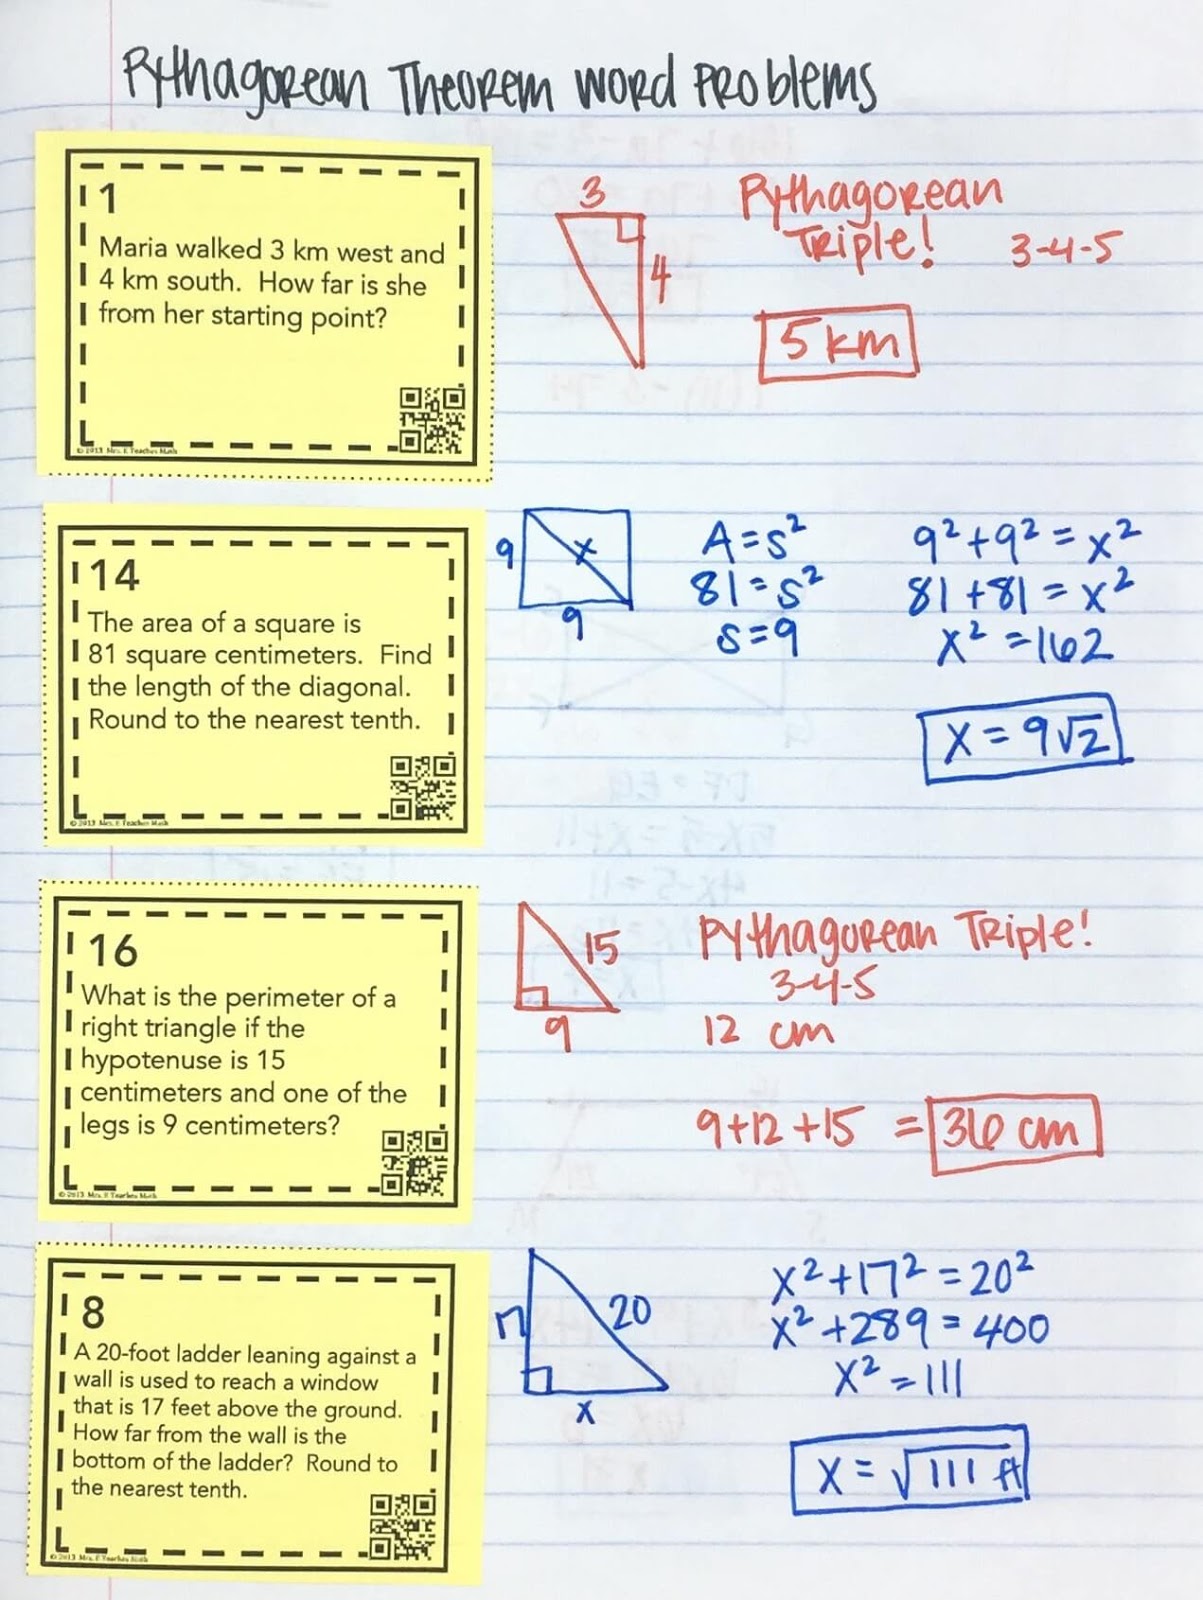 Pythagorean Theorem Word Problems
1
Maria walked 3 km west and
4 km south. How far is she
from her starting point?
© 2013 Mrs. E Teaches Math
3
4
Pythagorean
Triple! 3-4-5
5 km
14
The area of a square is
81 square centimeters. Find
the length of the diagonal.
Round to the nearest tenth.
© 2013 Mrs. E Teaches Math
9
x
9
A = s²
81 = s²
s = 9
9² + 9² = x²
81 + 81 = x²
x² = 162
x = 9√2
16
What is the perimeter of a
right triangle if the
hypotenuse is 15
centimeters and one of the
legs is 9 centimeters?
© 2013 Mrs. E Teaches Math
15
9
Pythagorean Triple!
3-4-5
12 cm
9 + 12 + 15 = 36 cm
8
A 20-foot ladder leaning against a
wall is used to reach a window
that is 17 feet above the ground.
How far from the wall is the
bottom of the ladder? Round to
the nearest tenth.
© 2013 Mrs. E Teaches Math
17
20
x
x² + 17² = 20²
x² + 289 = 400
x² = 111
x = √111 ft